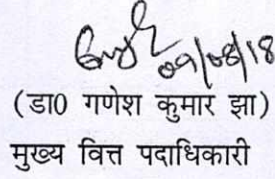 09/08/18
(डा0 गणेश कुमार झा)
मुख्य वित्त पदाधिकारी